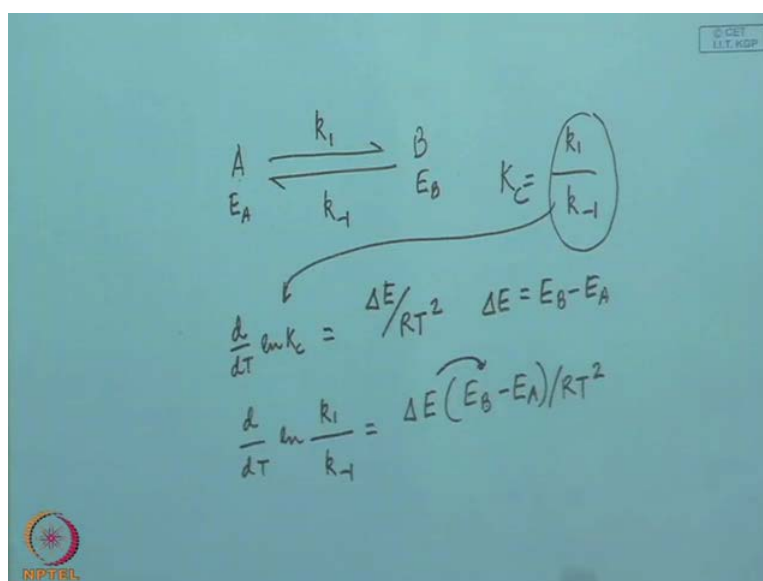 © CET
I.I.T. KGP
k₁
A ⇌ B
E_A k₋₁ E_B K_C = k₁/k₋₁
d/dT ln K_C = ΔE/RT² ΔE = E_B − E_A
d/dT ln k₁/k₋₁ = ΔE(E_B − E_A)/RT²
NPTEL